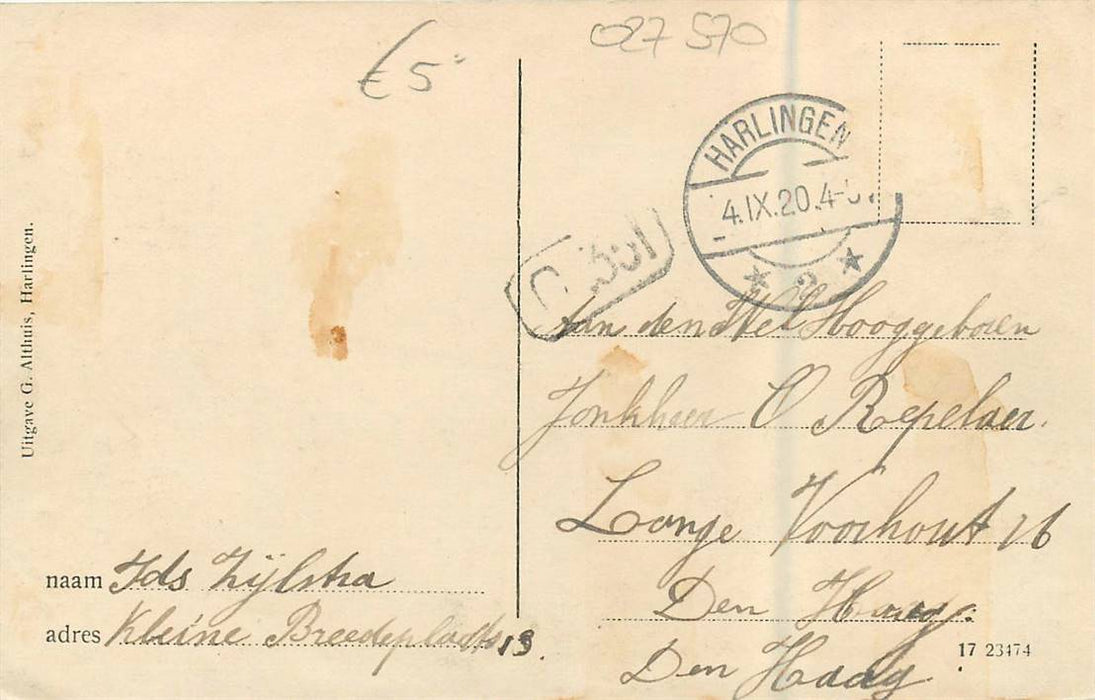 € 5
027 570
HARLINGEN
4.IX.20.4-5
Aan den Wel Hooggeboren
Jonkheer O Repelaer.
Lange Voorhout 16
Den Haag.
Den Haag.
naam Ids Zijlstra
adres Kleine Breedeplaats 13.
Uitgave G. Althuis, Harlingen.
17 23474